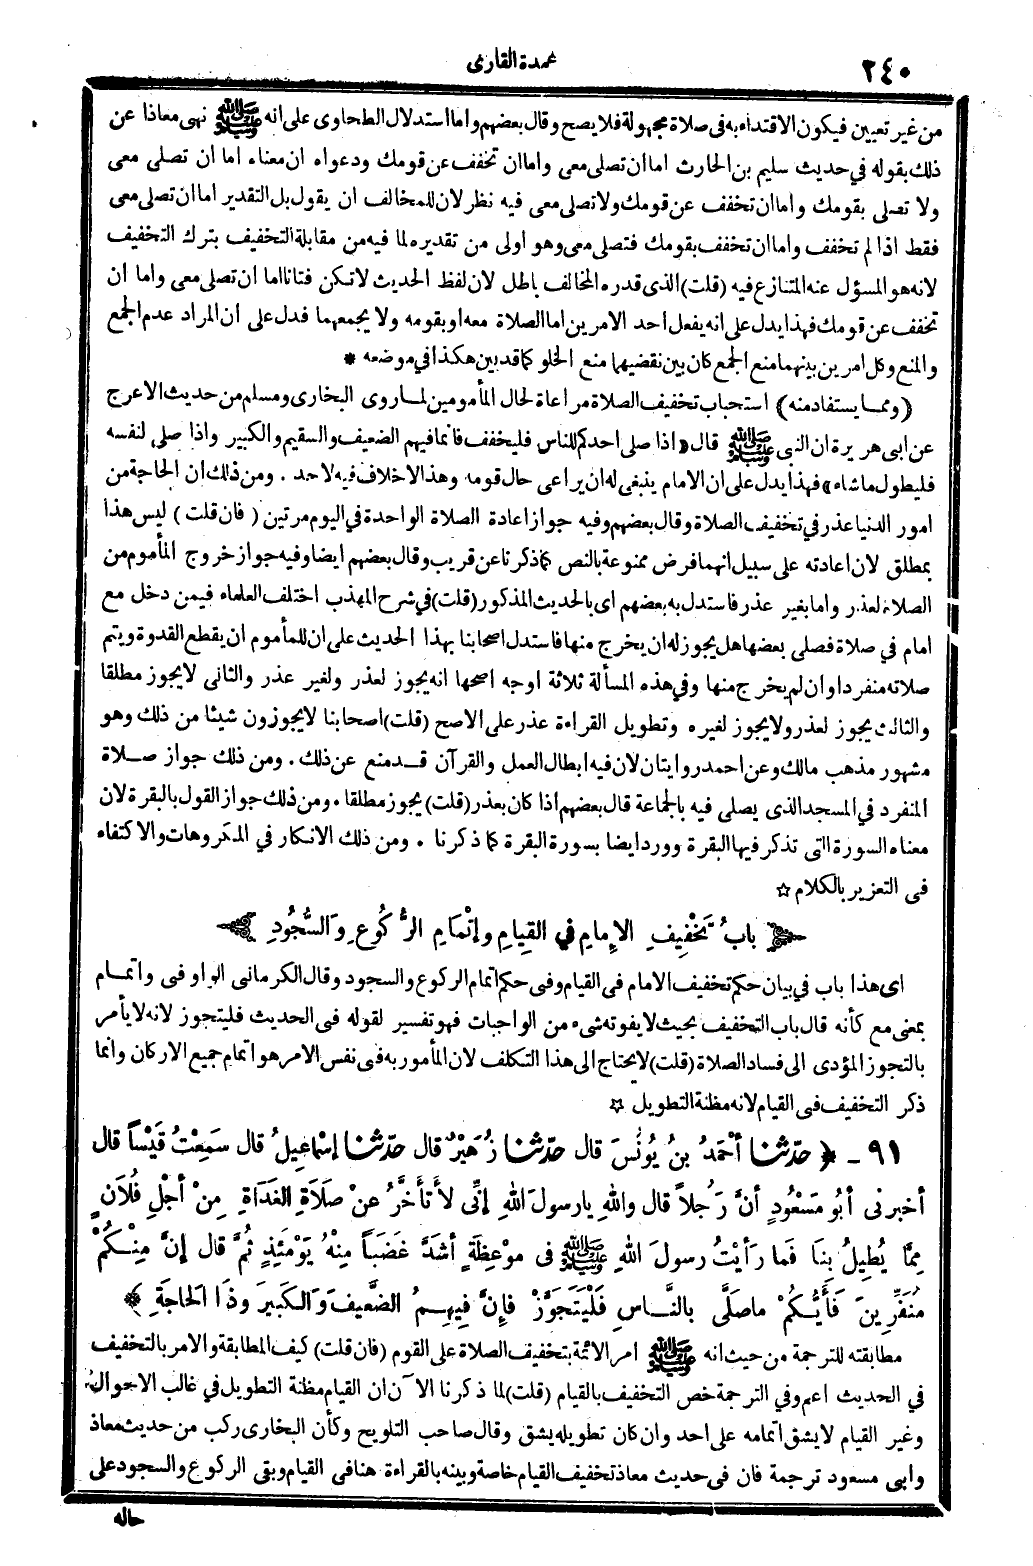 ٢٤٠
عمدة القارى
من غير تعيين فيكون الاقتداء به فى صلاة مجهولة فلا يصح وقال بعضهم واما استدلال الطحاوى على انه ﷺ نهى معاذا عن
ذلك بقوله فى حديث سليم بن الحارث اما ان تصلى معى واما ان تخفف عن قومك ودعواه ان معناه اما ان تصلى معى
ولا تصلى بقومك واما ان تخفف عن قومك ولا تصلى معى فيه نظر لان للمخالف ان يقول بل التقدير اما ان تصلى معى
فقط اذا لم تخفف واما ان تخفف بقومك فتصلى معى وهو اولى من تقديره لما فيه من مقابلة التخفيف بترك التخفيف
لانه هو المسؤل عنه المتنازع فيه (قلت) الذى قدره المخالف باطل لان لفظ الحديث لا تكن فتانا اما ان تصلى معى واما ان
تخفف عن قومك فهذا يدل على انه يفعل احد الامرين اما الصلاة معه او بقومه ولا يجمعهما فدل على ان المراد عدم الجمع
والمنع وكل امرين بينهما منع الجمع كان بين نقضيهما منع الخلو كما قد بين هكذا فى موضعه *
(ومما يستفاد منه) استحباب تخفيف الصلاة مراعاة لحال المأمومين لما روى البخارى ومسلم من حديث الاعرج
عن ابى هريرة ان النبى ﷺ قال «اذا صلى احدكم للناس فليخفف فان فيهم الضعيف والسقيم والكبير واذا صلى لنفسه
فليطول ما شاء» فهذا يدل على ان الامام ينبغى له ان يراعى حال قومه وهذا لا خلاف فيه لاحد . ومن ذلك ان الحاجة من
امور الدنيا عذر فى تخفيف الصلاة وقال بعضهم وفيه جواز اعادة الصلاة الواحدة فى اليوم مرتين (فان قلت) ليس هذا
بمطلق لان اعادته على سبيل انهما فرض ممنوعة بالنص كما ذكرنا عن قريب وقال بعضهم ايضا وفيه جواز خروج المأموم من
الصلاة لعذر واما بغير عذر فاستدل به بعضهم اى بالحديث المذكور (قلت) فى شرح المهذب اختلف العلماء فيمن دخل مع
امام فى صلاة فصلى بعضها هل يجوز له ان يخرج منها فاستدل اصحابنا بهذا الحديث على ان للمأموم ان يقطع القدوة ويتم
صلاته منفردا وان لم يخرج منها وفى هذه المسألة ثلاثة اوجه اصحها انه يجوز لعذر ولغير عذر والثانى لا يجوز مطلقا
والثالث يجوز لعذر ولا يجوز لغيره وتطويل القراءة عذر على الاصح (قلت) اصحابنا لا يجوزون شيئا من ذلك وهو
مشهور مذهب مالك وعن احمد روايتان لان فيه ابطال العمل والقرآن قد منع عن ذلك . ومن ذلك جواز صلاة
المنفرد فى المسجد الذى يصلى فيه بالجماعة قال بعضهم اذا كان بعذر (قلت) يجوز مطلقا . ومن ذلك جواز القول بالبقرة لان
معناه السورة التى تذكر فيها البقرة وورد ايضا بسورة البقرة كما ذكرنا . ومن ذلك الانكار فى المكروهات والاكتفاء
فى التعزير بالكلام ☆
﴿ بابُ تَخْفِيفِ الإمامِ في القِيامِ وإتْمامِ الرُّكُوعِ والسُّجُودِ ﴾
اى هذا باب فى بيان حكم تخفيف الامام فى القيام وفى حكم اتمام الركوع والسجود وقال الكرمانى الواو فى واتمام
بمعنى مع كأنه قال باب التخفيف بحيث لا يفوته شىء من الواجبات فهو تفسير لقوله فى الحديث فليتجوز لانه لا يأمر
بالتجوز المؤدى الى فساد الصلاة (قلت) لا يحتاج الى هذا التكلف لان المأمور به فى نفس الامر هو اتمام جميع الاركان وانما
ذكر التخفيف فى القيام لانه مظنة التطويل ☆
٩١ - ﴿ حدّثنا أحْمَدُ بنُ يُونُسَ قال حدّثنا زُهَيْرٌ قال حدّثنا إسْماعِيلُ قال سَمِعْتُ قَيْساً قال
أخبرنى أبُو مَسْعُودٍ أنَّ رَجُلاً قال واللهِ يارسولَ اللهِ إنِّى لأَتأخَّرُ عنْ صَلاَةِ الغَدَاةِ مِنْ أجْلِ فُلاَنٍ
مِمَّا يُطِيلُ بِنَا فَما رَأيْتُ رسولَ اللهِ ﷺ فى موْعِظَةٍ أشَدَّ غَضَباً مِنْهُ يَوْمَئِذٍ ثُمَّ قال إنَّ مِنْكُمْ
مُنَفِّرِينَ فَأيُّكُمْ ماصَلَّى بالنَّاسِ فَلْيَتَجَوَّزْ فإنَّ فِيهِمُ الضَّعِيفَ والكَبِيرَ وذَا الحاجَةِ ﴾
مطابقته للترجمة من حيث انه ﷺ امر الائمة بتخفيف الصلاة على القوم (فان قلت) كيف المطابقة والامر بالتخفيف
فى الحديث اعم وفى الترجمة خص التخفيف بالقيام (قلت) لما ذكرنا الآن ان القيام مظنة التطويل فى غالب الاحوال
وغير القيام لا يشق اتمامه على احد وان كان تطويله يشق وقال صاحب التلويح وكأن البخارى ركب من حديث معاذ
وابى مسعود ترجمة فان فى حديث معاذ تخفيف القيام خاصة وبينه بالقراءة هنا فى القيام وبقى الركوع والسجود على
حاله